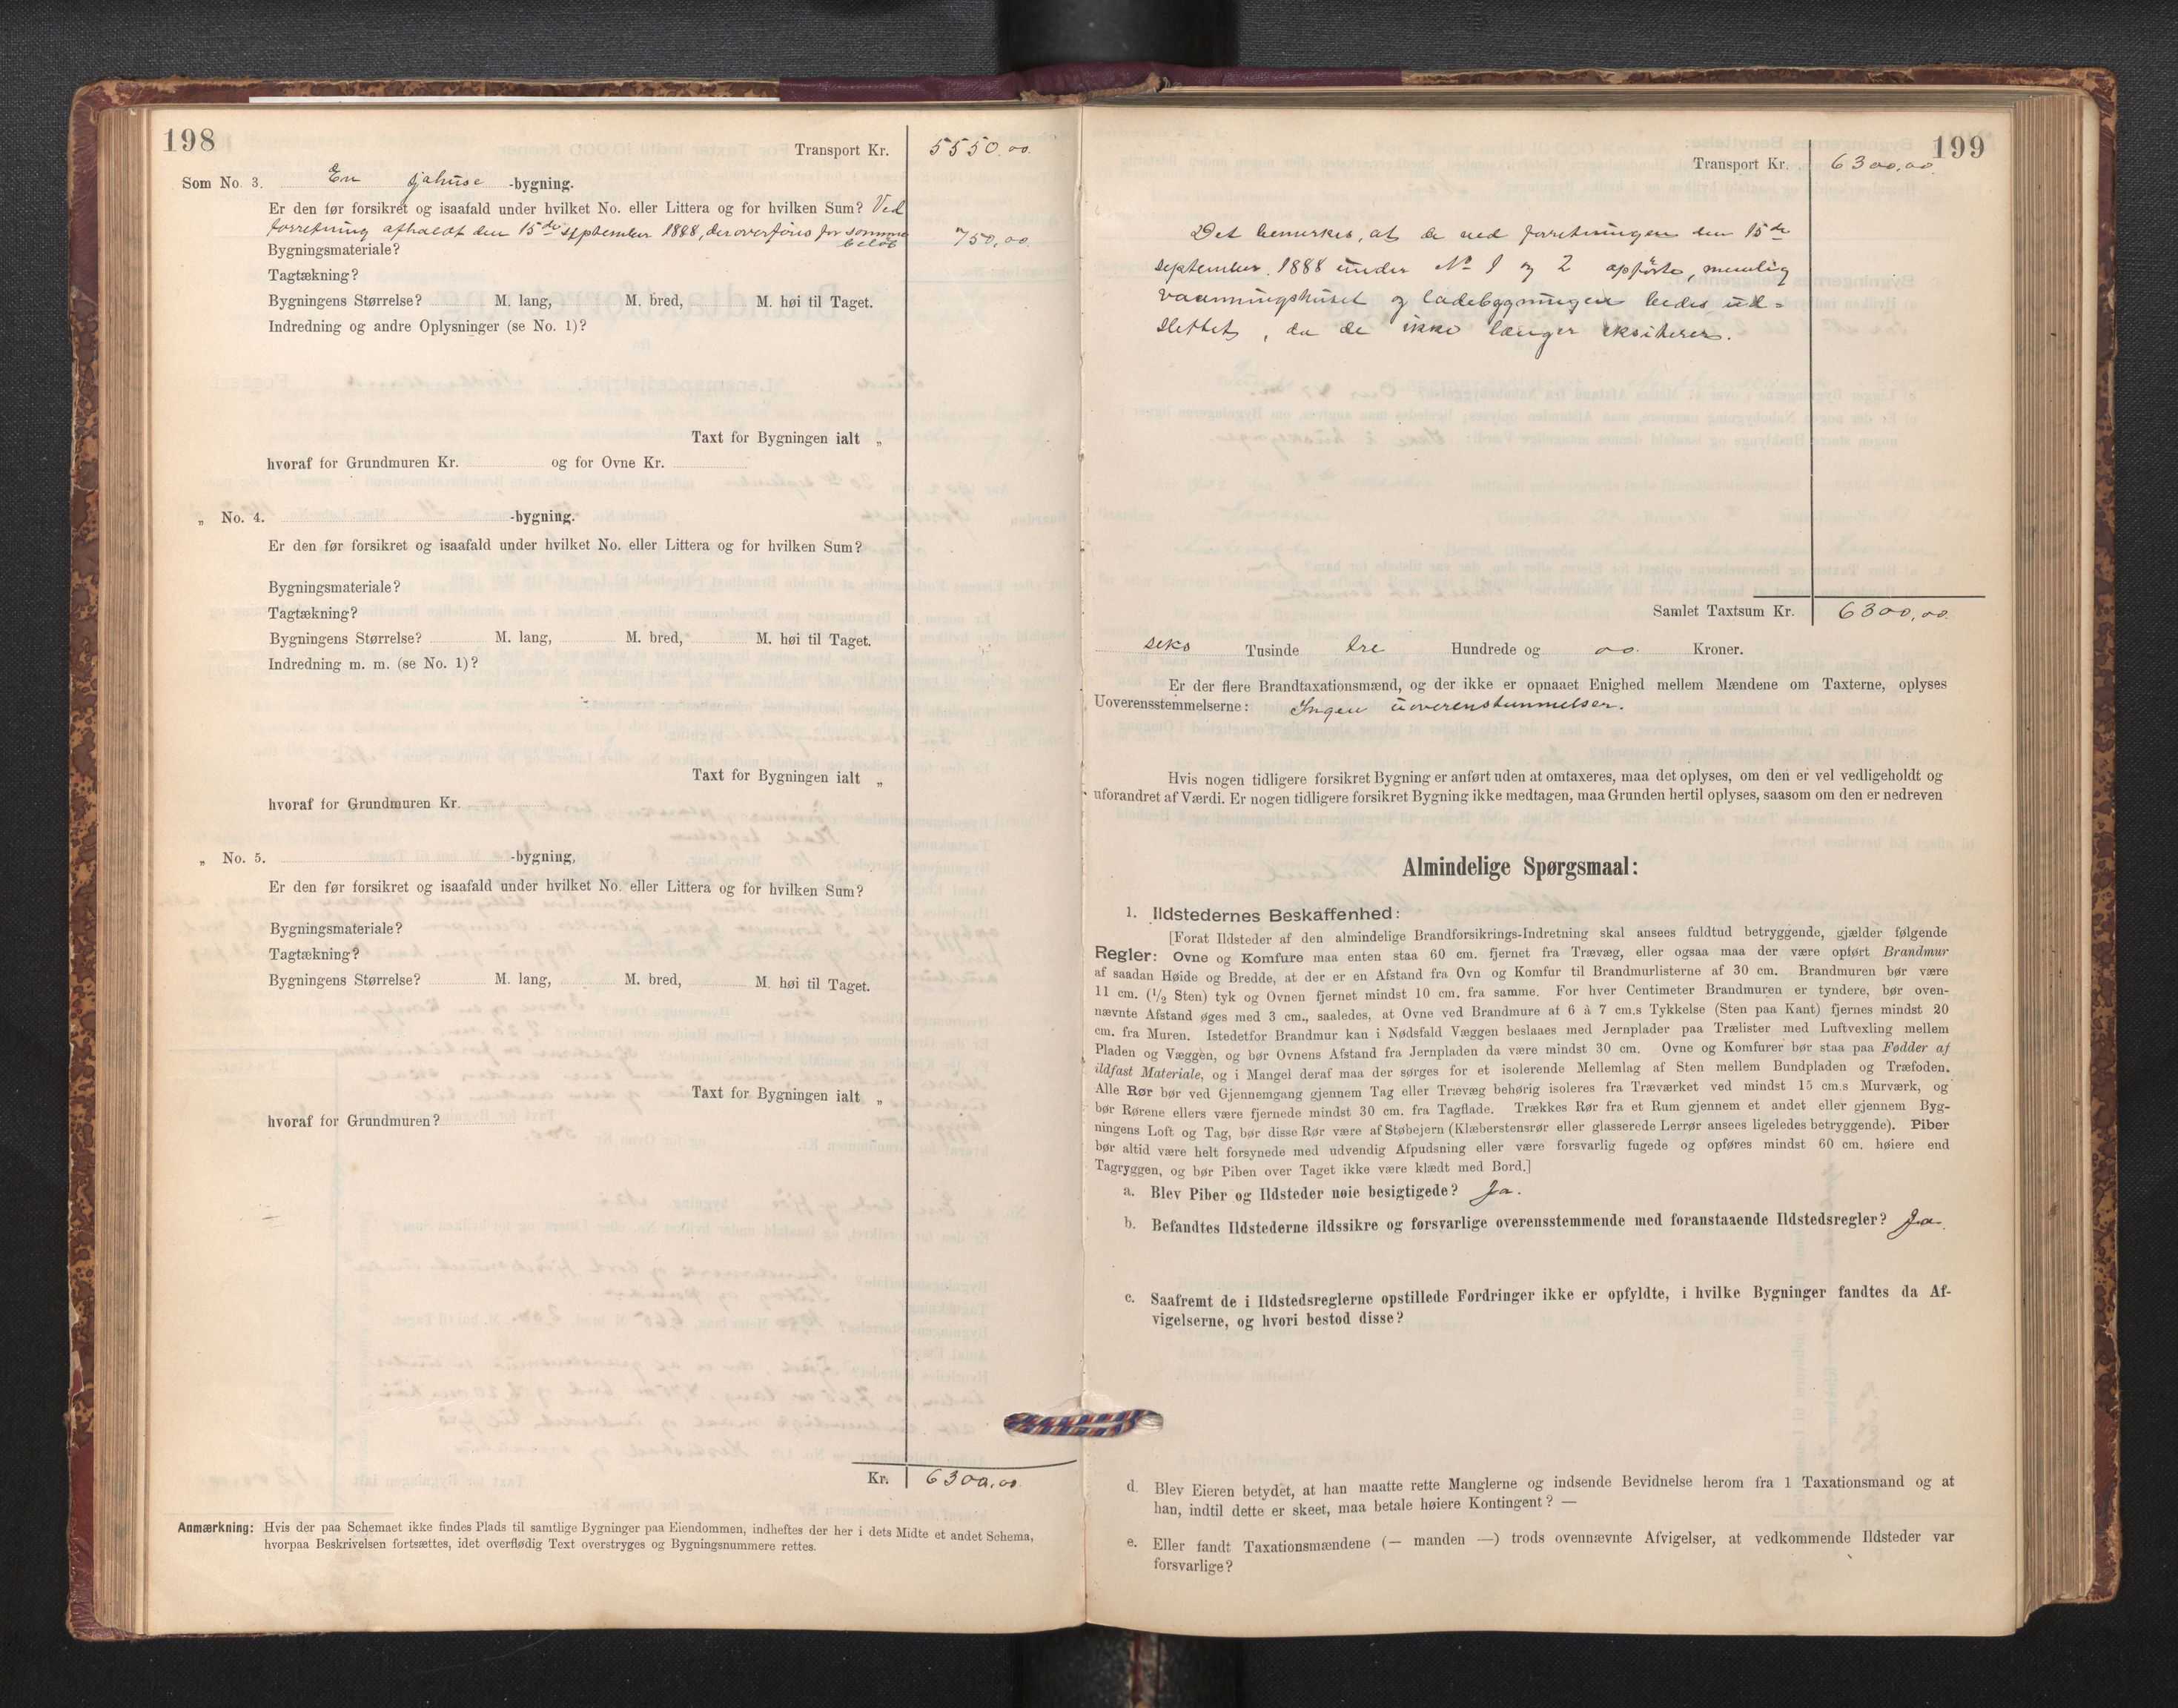 198
Transport Kr. 5550,00.
Som No. 3. En sjøhuse -bygning.
Er den før forsikret og isaafald under hvilket No. eller Littera og for hvilken Sum? Ved
forretning afholdt den 15de september 1888, der overføres for samme
beløb 750,00.
Bygningsmateriale?
Tagtækning?
Bygningens Størrelse? M. lang, M. bred, M. høi til Taget.
Indredning og andre Oplysninger (se No. 1)?
Taxt for Bygningen ialt „
hvoraf for Grundmuren Kr. og for Ovne Kr.
„ No. 4. -bygning.
Er den før forsikret og isaafald under hvilket No. eller Littera og for hvilken Sum?
Bygningsmateriale?
Tagtækning?
Bygningens Størrelse? M. lang, M. bred, M. høi til Taget.
Indredning m. m. (se No. 1)?
Taxt for Bygningen ialt „
hvoraf for Grundmuren Kr.
„ No. 5. -bygning,
Er den før forsikret og isaafald under hvilket No. eller Littera og for hvilken Sum?
Bygningsmateriale?
Tagtækning?
Bygningens Størrelse? M. lang, M. bred, M. høi til Taget.
Taxt for Bygningen ialt „
hvoraf for Grundmuren?
Kr. 6300,00.
Anmærkning: Hvis der paa Schemaet ikke findes Plads til samtlige Bygninger paa Eiendommen, indheftes der her i dets Midte et andet Schema,
hvorpaa Beskrivelsen fortsættes, idet overflødig Text overstryges og Bygningsnummere rettes.
199
Transport Kr. 6300,00.
Det bemerkes, at de ved forretningen den 15de
september 1888 under No 1 og 2 opførte, nemlig
vaaningshuset og ladebygningen bedes ud-
slettet, da de ikke længer eksisterer.
Samlet Taxtsum Kr. 6300,00.
seks Tusinde tre Hundrede og 00. Kroner.
Er der flere Brandtaxationsmænd, og der ikke er opnaaet Enighed mellem Mændene om Taxterne, oplyses
Uoverensstemmelserne: Ingen uoverenstemmelser.
Hvis nogen tidligere forsikret Bygning er anført uden at omtaxeres, maa det oplyses, om den er vel vedligeholdt og
uforandret af Værdi. Er nogen tidligere forsikret Bygning ikke medtagen, maa Grunden hertil oplyses, saasom om den er nedreven
Almindelige Spørgsmaal:
1. Ildstedernes Beskaffenhed:
[Forat Ildsteder af den almindelige Brandforsikrings-Indretning skal ansees fuldtud betryggende, gjælder følgende
Regler: Ovne og Komfure maa enten staa 60 cm. fjernet fra Trævæg, eller ogsaa maa der være opført Brandmur
af saadan Høide og Bredde, at der er en Afstand fra Ovn og Komfur til Brandmurlisterne af 30 cm. Brandmuren bør være
11 cm. (1/2 Sten) tyk og Ovnen fjernet mindst 10 cm. fra samme. For hver Centimeter Brandmuren er tyndere, bør oven-
nævnte Afstand øges med 3 cm., saaledes, at Ovne ved Brandmure af 6 à 7 cm.s Tykkelse (Sten paa Kant) fjernes mindst 20
cm. fra Muren. Istedetfor Brandmur kan i Nødsfald Væggen beslaaes med Jernplader paa Trælister med Luftvexling mellem
Pladen og Væggen, og bør Ovnens Afstand fra Jernpladen da være mindst 30 cm. Ovne og Komfurer bør staa paa Fødder af
ildfast Materiale, og i Mangel deraf maa der sørges for et isolerende Mellemlag af Sten mellem Bundpladen og Træfoden.
Alle Rør bør ved Gjennemgang gjennem Tag eller Trævæg behørig isoleres fra Træværket ved mindst 15 cm.s Murværk, og
bør Rørene ellers være fjernede mindst 30 cm. fra Tagflade. Trækkes Rør fra et Rum gjennem et andet eller gjennem Byg-
ningens Loft og Tag, bør disse Rør være af Støbejern (Klæberstensrør eller glasserede Lerrør ansees ligeledes betryggende). Piber
bør altid være helt forsynede med udvendig Afpudsning eller være forsvarlig fugede og opføres mindst 60 cm. høiere end
Tagryggen, og bør Piben over Taget ikke være klædt med Bord.]
a. Blev Piber og Ildsteder nøie besigtigede? Ja.
b. Befandtes Ildstederne ildssikre og forsvarlige overensstemmende med foranstaaende Ildstedsregler? Ja.
c. Saafremt de i Ildstedsreglerne opstillede Fordringer ikke er opfyldte, i hvilke Bygninger fandtes da Af-
vigelserne, og hvori bestod disse?
d. Blev Eieren betydet, at han maatte rette Manglerne og indsende Bevidnelse herom fra 1 Taxationsmand og at
han, indtil dette er skeet, maa betale høiere Kontingent? —
e. Eller fandt Taxationsmændene (— manden —) trods ovennævnte Afvigelser, at vedkommende Ildsteder var
forsvarlige?